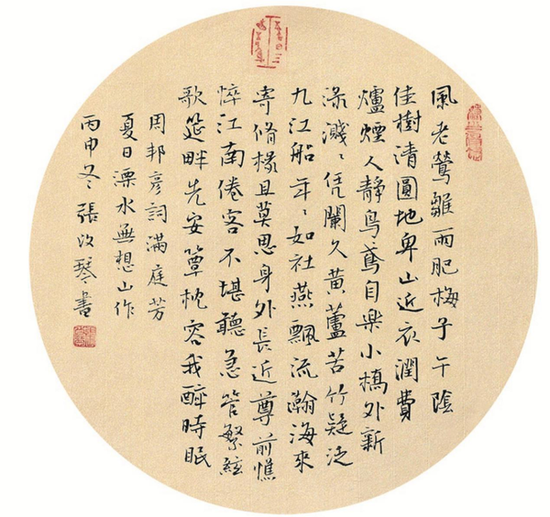 風老鶯雛雨肥梅子午陰
佳樹清圓地卑山近衣潤費
爐煙人靜鳥鳶自樂小橋外新
淥濺〻凭闌久黄蘆苦竹疑泛
九江船年〻如社燕飄流瀚海來
寄脩椽且莫思身外長近尊前憔
悴江南倦客不堪聽急管繁絃
歌筵畔先安簟枕容我醉時眠
周邦彦詞滿庭芳
夏日溧水無想山作
丙申冬張改琴書